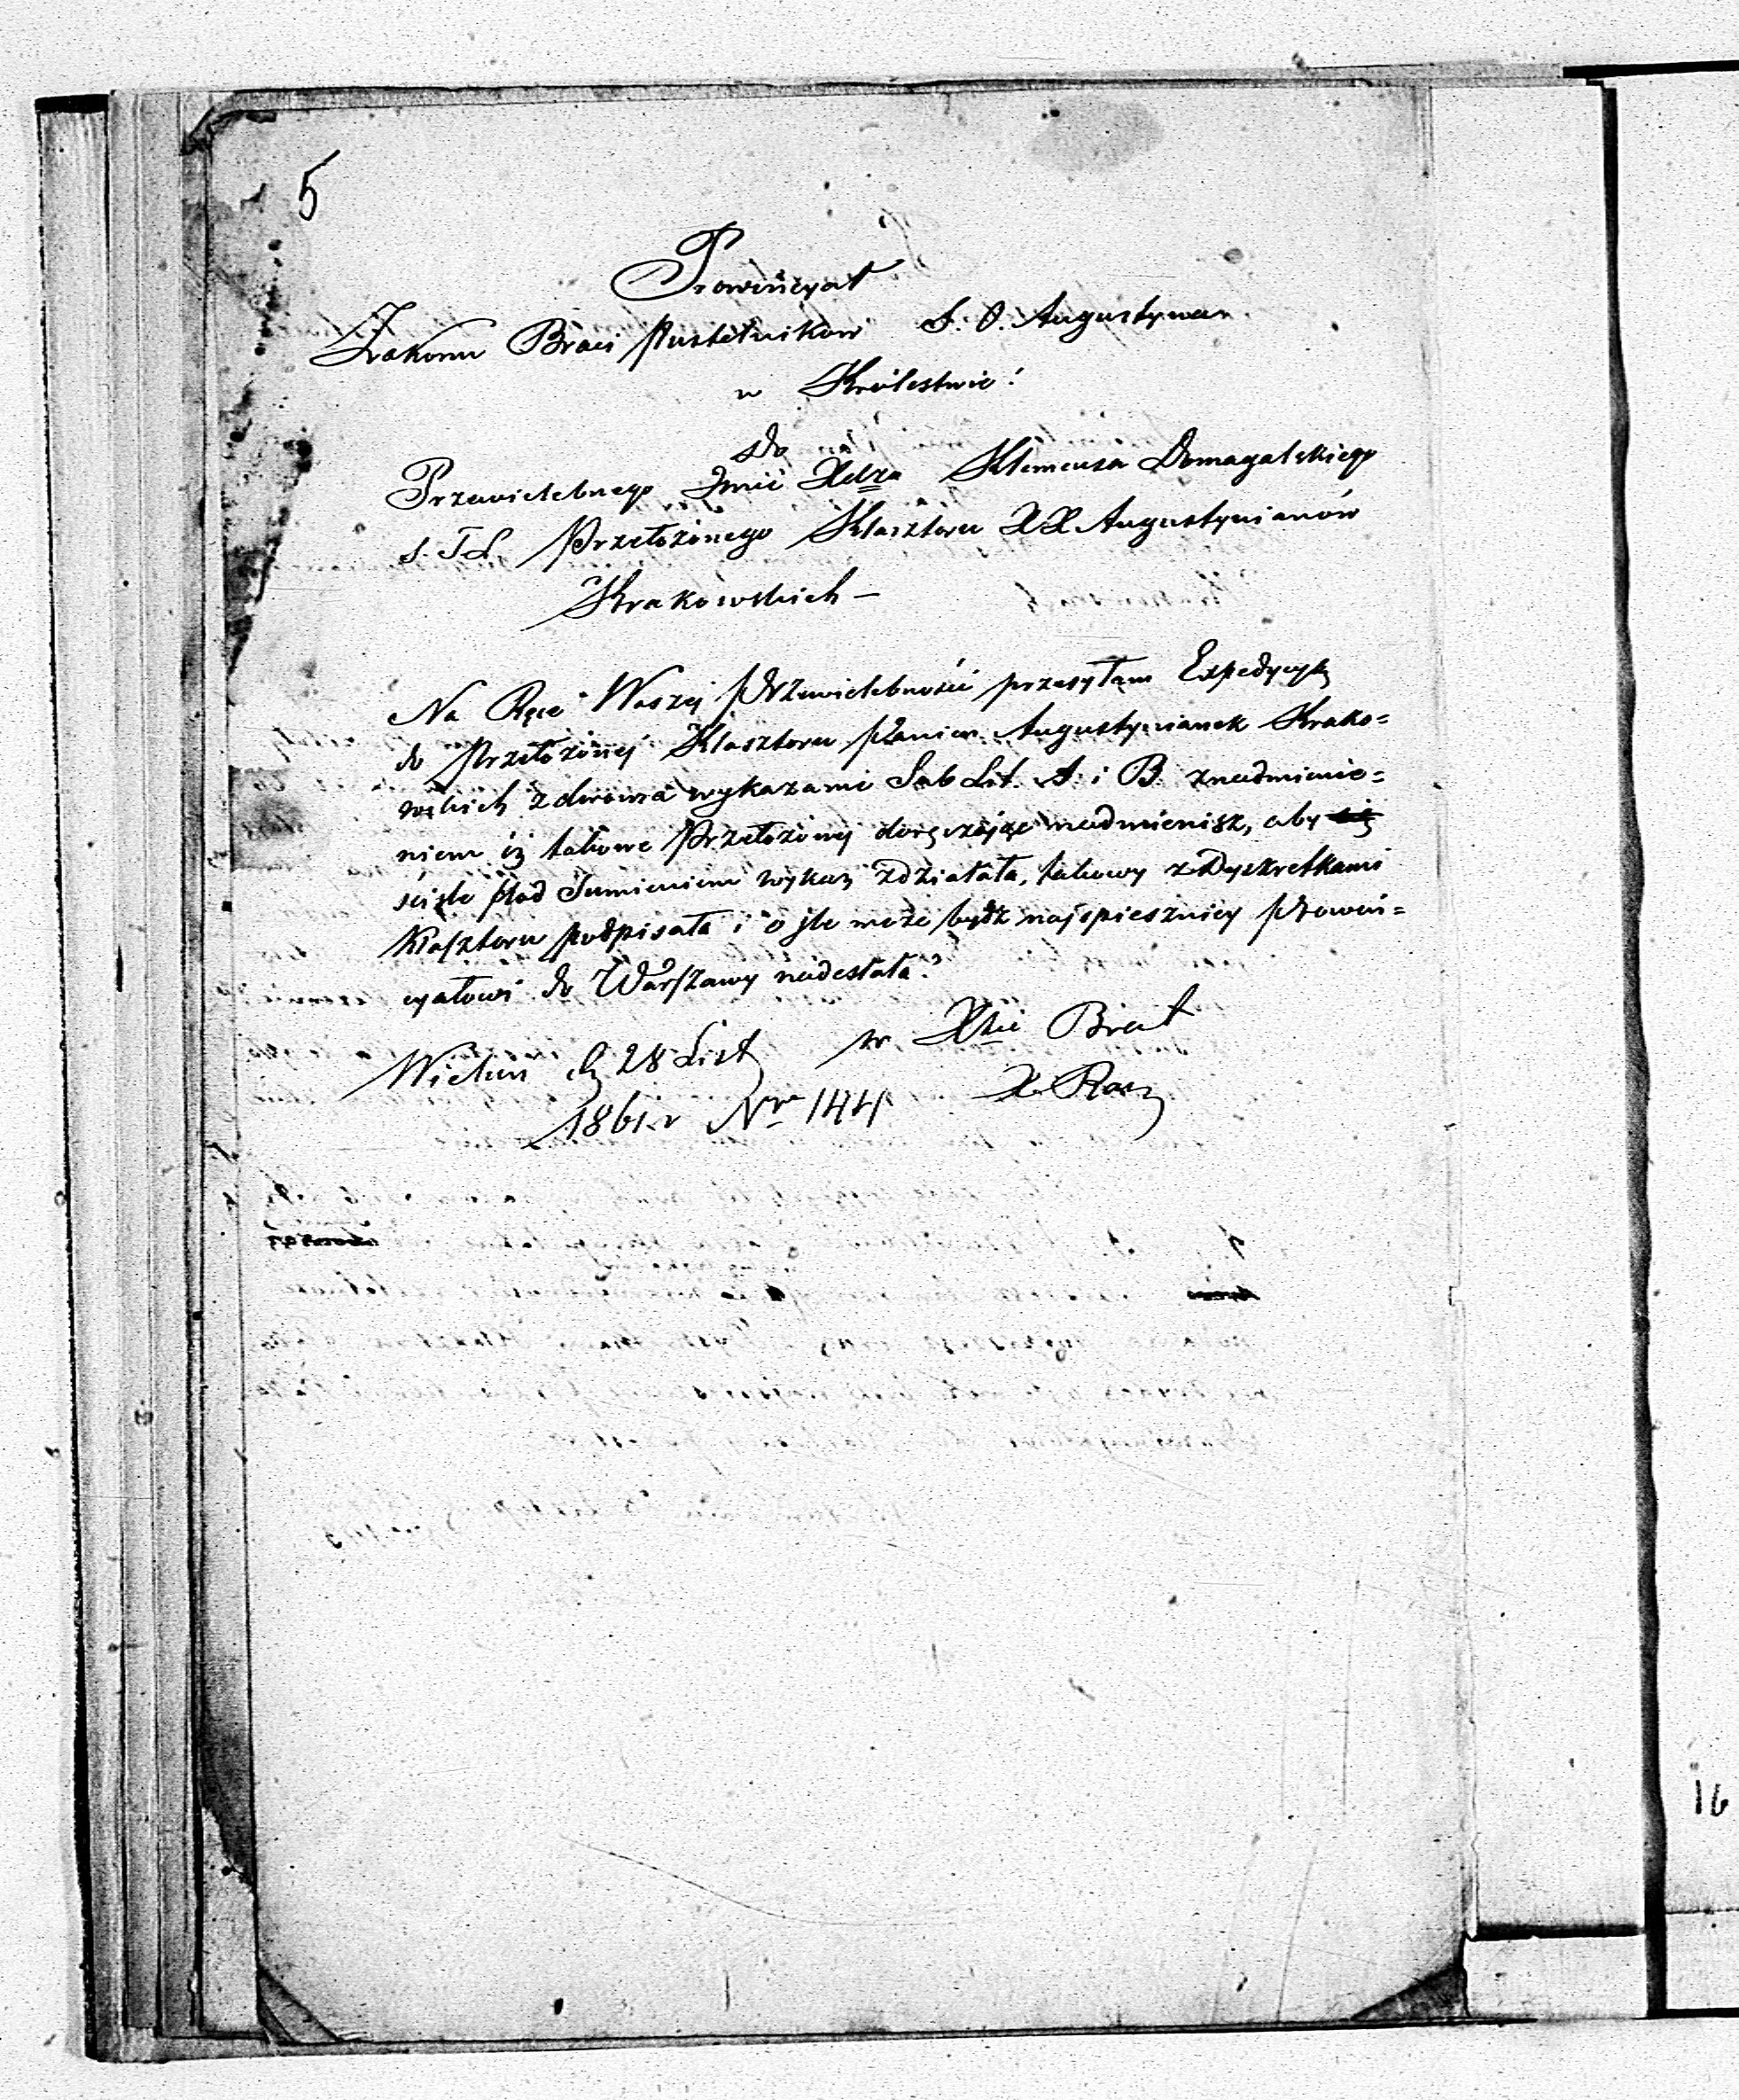 5
Prowincyał
Zakonu Braci Pustelników S. O. Augustyna
w Królestwie!
do
Przewielebnego Jmić Xdza Klemensa Domagalskiego
S. T. L. Przełożonego Klasztoru XX Augustynianów
Krakowskich –
Na Ręce Waszej Przewielebności przesyłam Expedycyą
do Przełożonej Klasztoru Panien Augustynianek Krako=
wskich z dwoma wykazami Sub Lit. A. i B. z nadmienie=
niem iż takowe Przełożonej doręczając nadmienisz, aby
ściśle Pod Sumieniem wykaz zdziałała, takowy z Dyskretkami
Klasztoru podpisała i o jle może bydź najspieszniej Prowin=
cyałowi do Warszawy nadesłała.
Wieluń d. 28 List w Xtie Brat
1861 r Nro 144 X. Racz
16